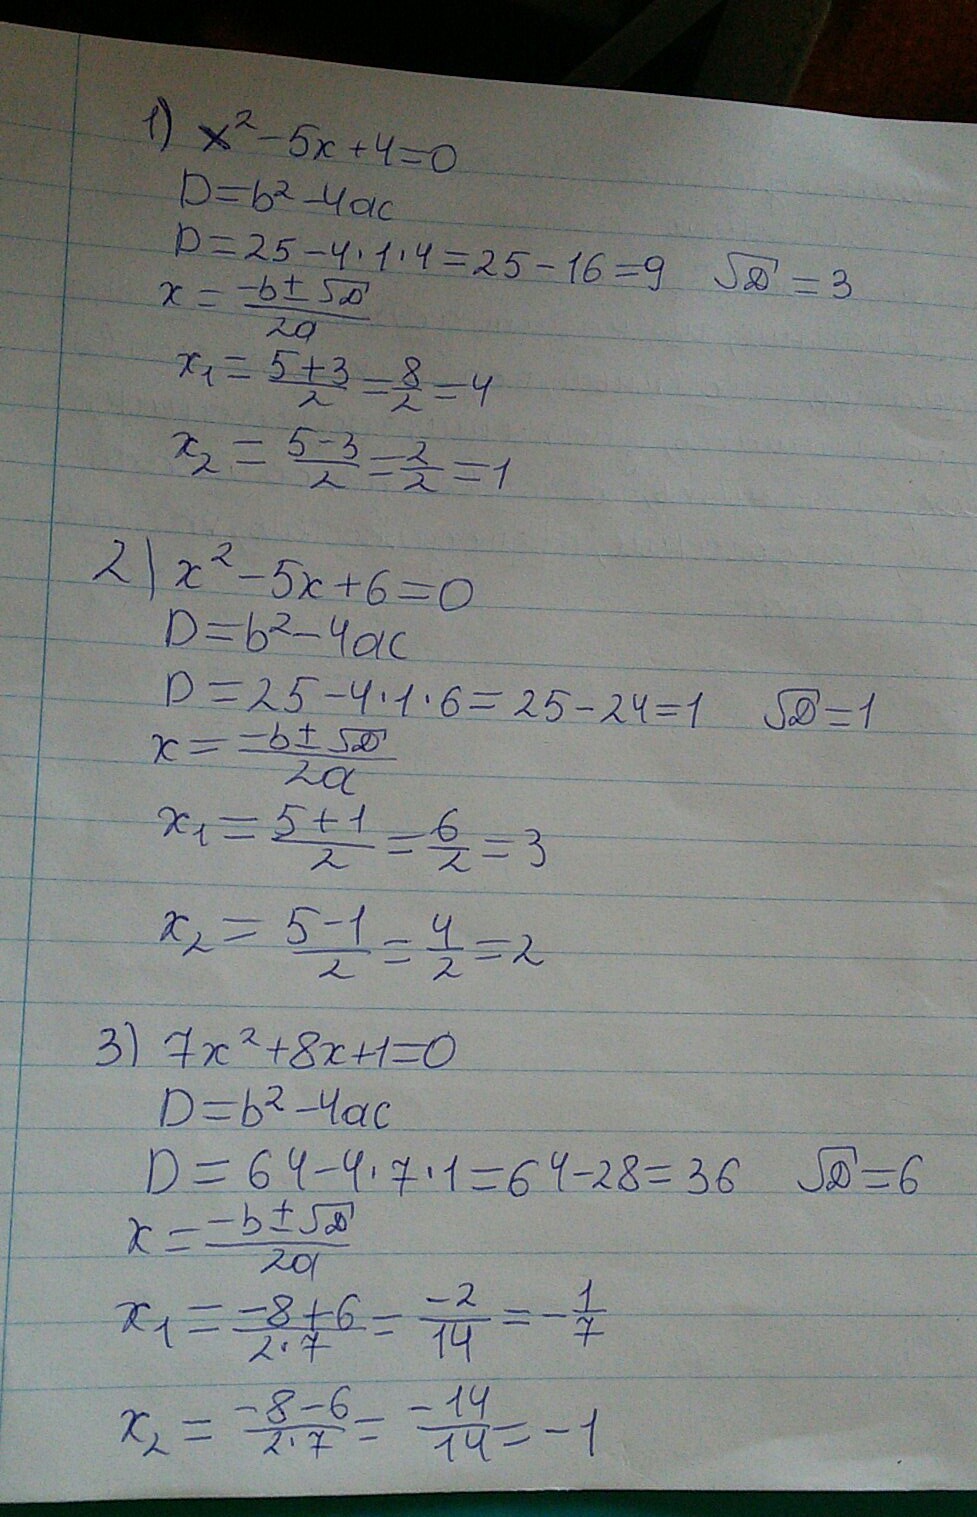 1) x² - 5x + 4 = 0
D = b² - 4ac
D = 25 - 4·1·4 = 25 - 16 = 9 √D = 3
x = (-b ± √D)/2a
x₁ = (5+3)/2 = 8/2 = 4
x₂ = (5-3)/2 = 2/2 = 1
2) x² - 5x + 6 = 0
D = b² - 4ac
D = 25 - 4·1·6 = 25 - 24 = 1 √D = 1
x = (-b ± √D)/2a
x₁ = (5+1)/2 = 6/2 = 3
x₂ = (5-1)/2 = 4/2 = 2
3) 7x² + 8x + 1 = 0
D = b² - 4ac
D = 64 - 4·7·1 = 64 - 28 = 36 √D = 6
x = (-b ± √D)/2a
x₁ = (-8+6)/(2·7) = -2/14 = -1/7
x₂ = (-8-6)/(2·7) = -14/14 = -1